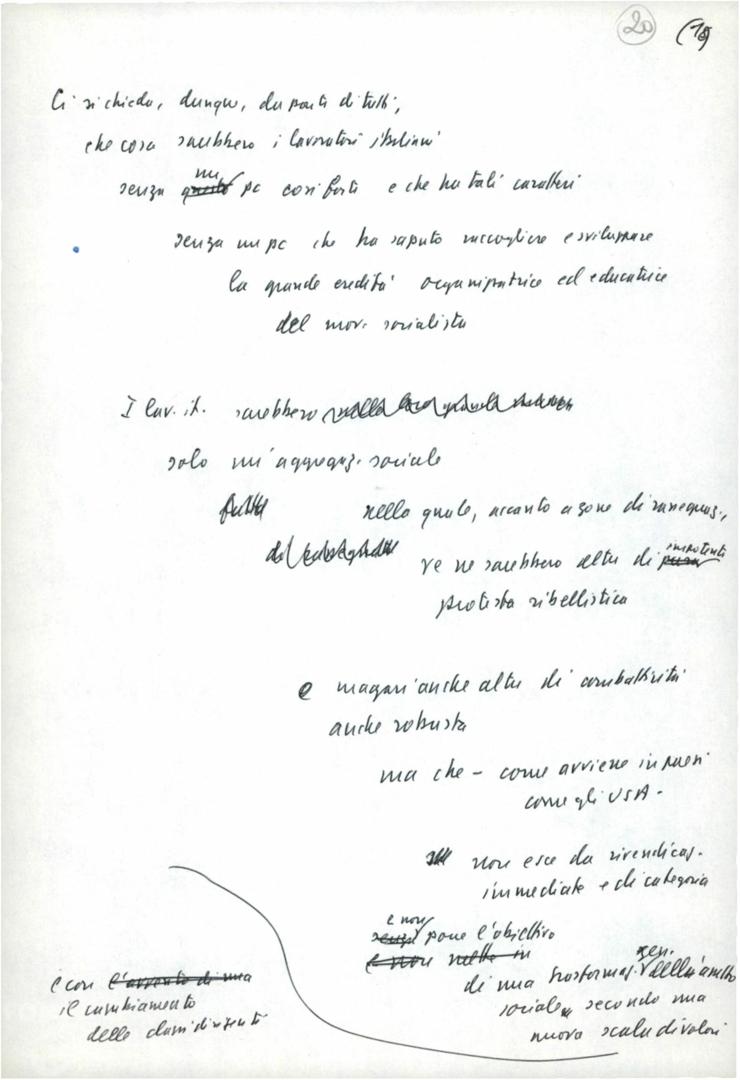 20 (18)
Ci si chieda, dunque, da parte di tutti,
che cosa sarebbero i lavoratori italiani
un
senza questo pc così forte e che ha tali caratteri
senza un pc che ha saputo raccogliere e sviluppare
la grande eredità organizzatrice ed educatrice
del mov. socialista
I lav. it. sarebbero
solo un'aggregaz. sociale
nella quale, accanto a zone di rassegnaz.,
impotente
ve ne sarebbero altre di pura
protesta ribellistica
e magari anche altre di combattività
anche robusta
ma che – come avviene in paesi
come gli USA –
non esce da rivendicaz.
immediate e di categoria
e non
senza pone l'obiettivo
e non nella in
gen.
di una trasformaz. dell'assetto
sociale secondo una
nuova scala di valori
e con l'avvento di una
il cambiamento
delle classi dirigenti